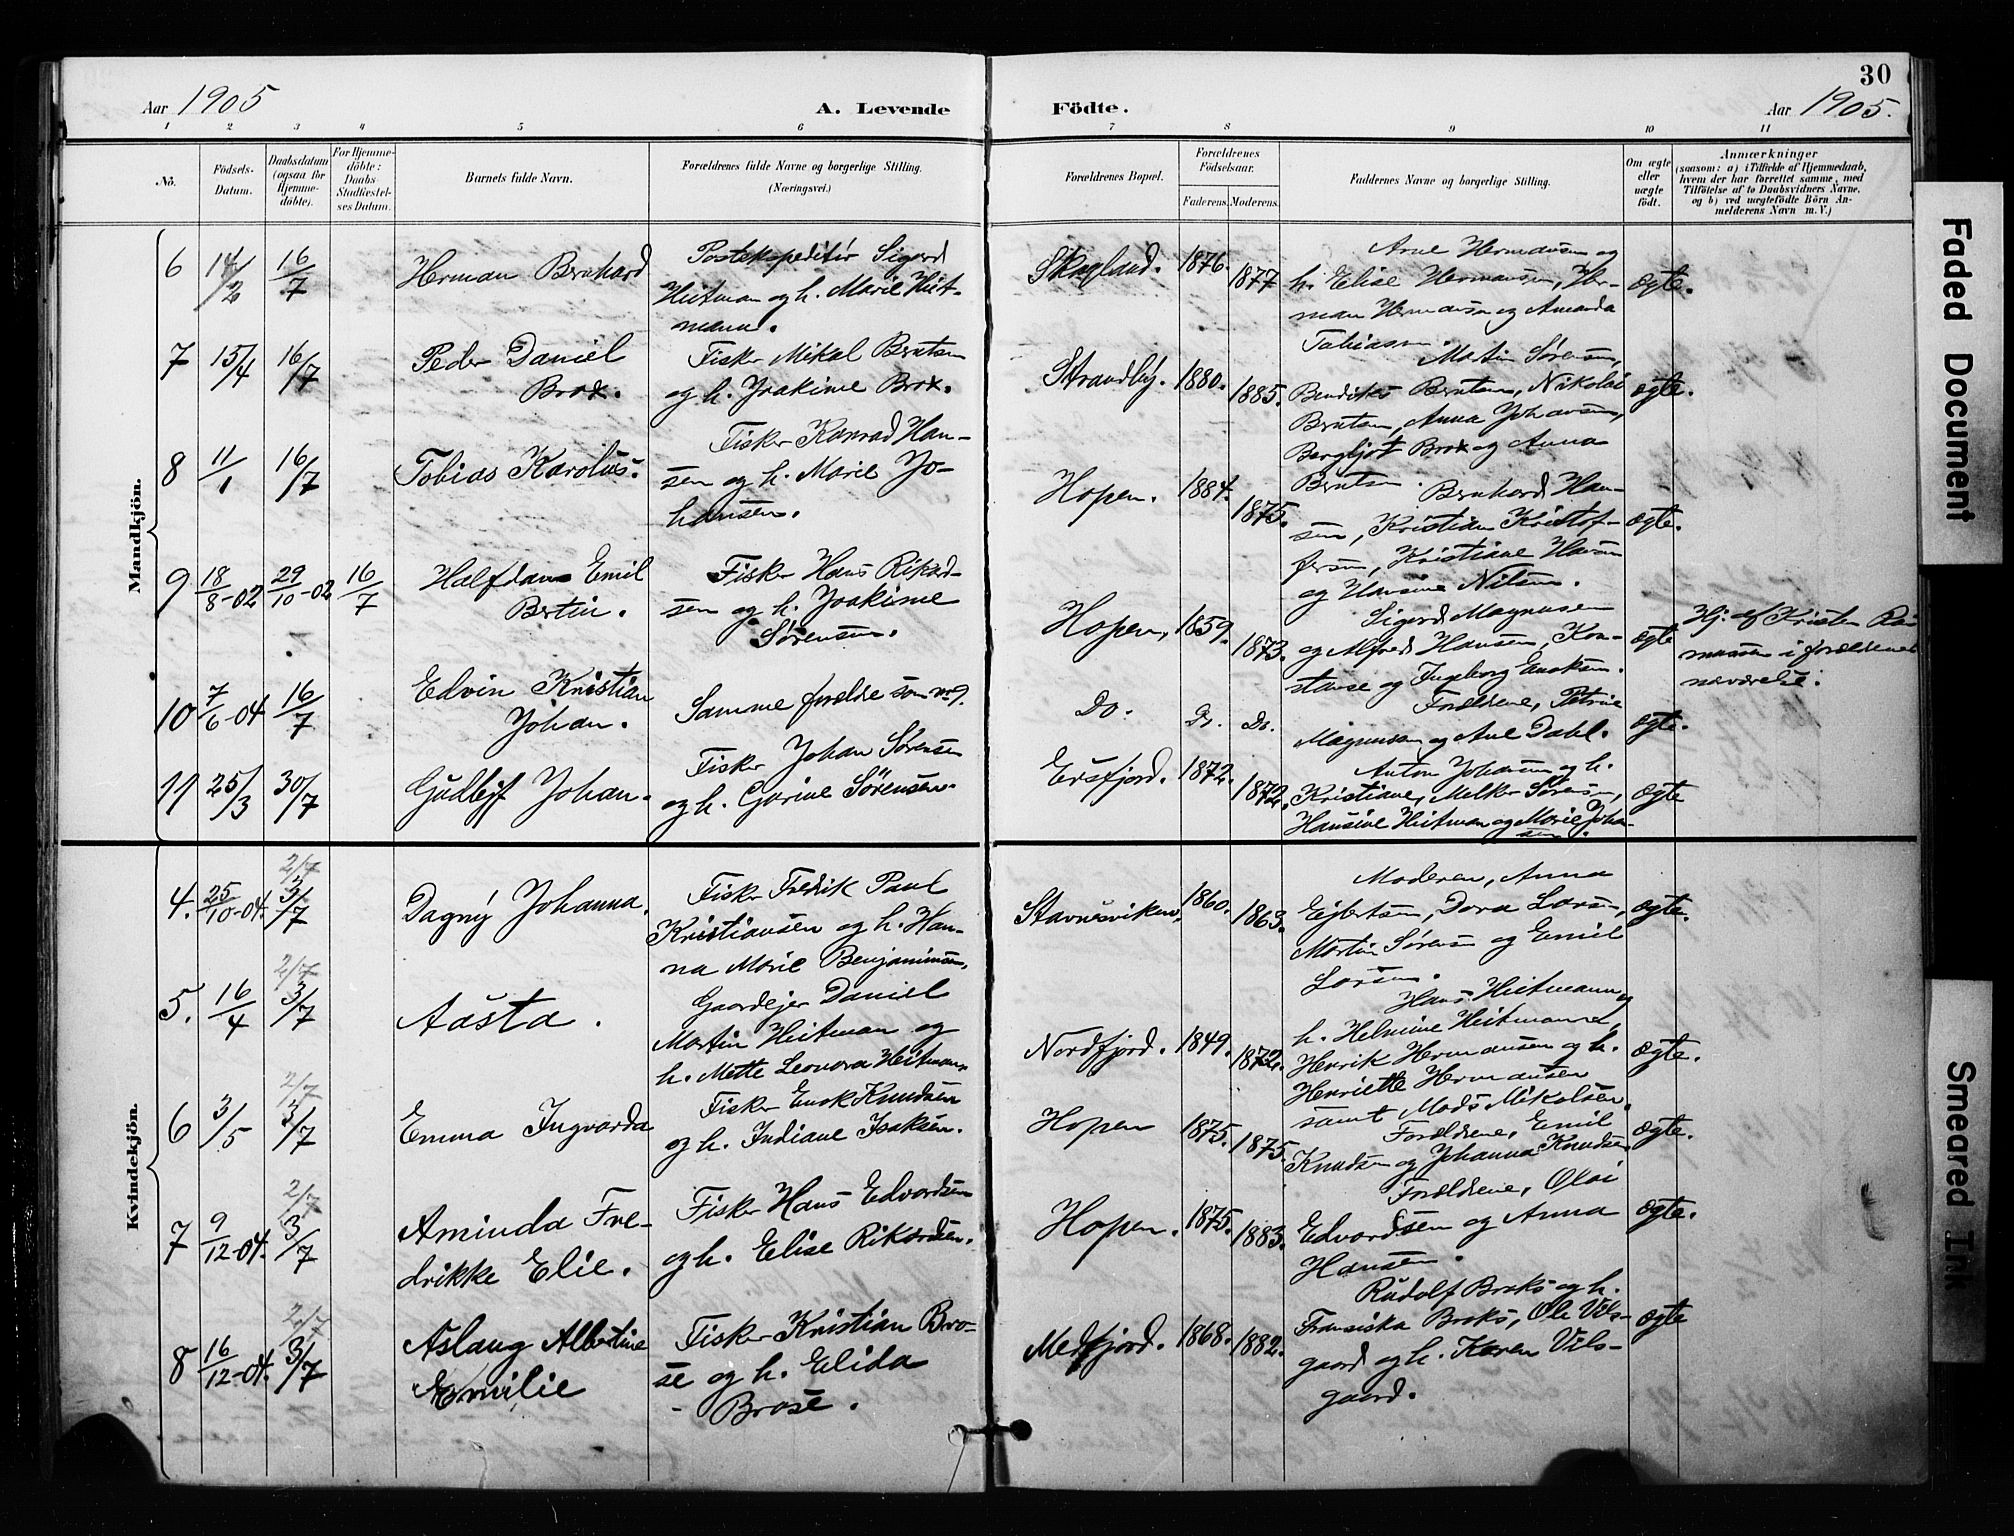 30
Aar 1905
A. Levende
Födte.
Aar 1905.
1 2 3 4 5 6 7 8 9 10 11
No.
Födsels-
Datum.
Daabsdatum
(ogsaa for
Hjemme-
döbte).
For Hjemme-
döbte:
Daabs-
Stadfæstel-
ses Datum.
Barnets fulde Navn.
Forældrenes fulde Navne og borgerlige Stilling.
(Næringsvei.)
Forældrenes Bopæl.
Forældrenes
Födselsaar.
Faderens. Moderens.
Faddernes Navne og borgerlige Stilling.
Om ægte
eller
uægte
født.
Anmærkninger
(saasom: a) i Tilfælde af Hjemmedaab,
hvem der har forrettet samme, med
Tilføielse af to Daabsvidners Navne,
og b) ved uægtefödte Börn An-
melderens Navn m. V.)
Mandkjön.
6 14/2 16/7 Herman Bernhard
Postekspeditør Sigurd
Heitman og h. Marie Heit-
mann.
Skogland. 1876. 1877
Arne Hermansen og
h. Elise Hermansen, Her-
man Hermansen og Amanda
Tobiasen.
ægte.
7 15/4 16/7 Peder Daniel
Brox.
Fisker Mikal Berntsen
og h. Joakime Brox.
Strandby. 1880. 1885.
Martin Sørensen,
Bendiks Berntsen, Nikolai
Berntsen, Anna Johansen,
Bergljot Brox og Anna
Berntsen.
ægte.
8 11/1 16/7 Tobias Karolus.
Fisker Konrad Han-
sen og h. Marie Jo-
hansen.
Hopen. 1884. 1875.
Bernhard Han-
sen, Kristian Kristof-
fersen, Kristiane Hansen
og Hansine Nilsen.
ægte.
9 18/8-02 29/10-02 16/7 Halfdan Emil
Bertin.
Fisker Hans Rikard-
sen og h. Joakime
Sørensen.
Hopen. 1859. 1873.
Sigurd Magnusen
og Alfred Hansen, Kon-
stanse og Ingeborg Enoksen.
ægte
Hj. af Kristen
i forældrenes
nærværelse.
10 7/6-04 16/7 Edvin Kristian
Johan.
Samme forældre som no 9.
Do. Do. Do.
Forældrene, Petrine
Magnussen og Ane Dahl.
ægte.
11 25/3 30/7 Gudleif Johan.
Fisker Johan Sørensen
og h. Gorine Sørensen.
Ersfjord. 1872. 1872.
Anton Johansen og h.
Kristiane, Melker Sørensen,
Hansine Heitman og Marie Johan-
sen.
ægte
Kvindekjön.
2/7
4. 25/10-04. 3/7 Dagny Johanna.
Fisker Fredrik Paul
Kristiansen og h. Han-
na Marie Benjaminsen.
Stavnesviken. 1860. 1863.
Moderen, Anna
Eilertsen, Dora Larsen,
Martin Sørensen og Emil
Larsen.
ægte.
2/7
5. 16/4 3/7 Aasta.
Gaardejer Daniel
Martin Heitman og
h. Mette Leonora Heitman.
Nordfjord. 1849. 1872.
Hans Heitmann og
h. Helmine Heitmann,
Henrik Hermansen og h.
Henriette Hermansen
samt Mads Mikalsen.
ægte.
2/7
6 3/5 3/7 Emma Ingvarda
Fisker Enok Knudsen
og h. Indiane Isaksen.
Hopen 1875. 1875.
Forældrene, Emil
Knudsen og Johanna Knudsen.
ægte.
2/7
7 9/12-04. 3/7 Aminda Fre-
drikke Elie.
Fisker Hans Edvardsen
og h. Elise Rikardsen.
Hopen. 1875. 1883.
Forældrene, Olai
Edvardsen og Anna
Hansen.
ægte.
2/7
8 16/12-04. 3/7 Aslaug Albertine
Emilie
Fisker Kristian Bro-
se og h. Elida
Brose.
Medfjord. 1868. 1882.
Rudolf Broks og h.
Fransiska Broks, Ole Vils-
gaard og h. Karen Vils-
gaard.
ægte
Faded Document
Smeared Ink